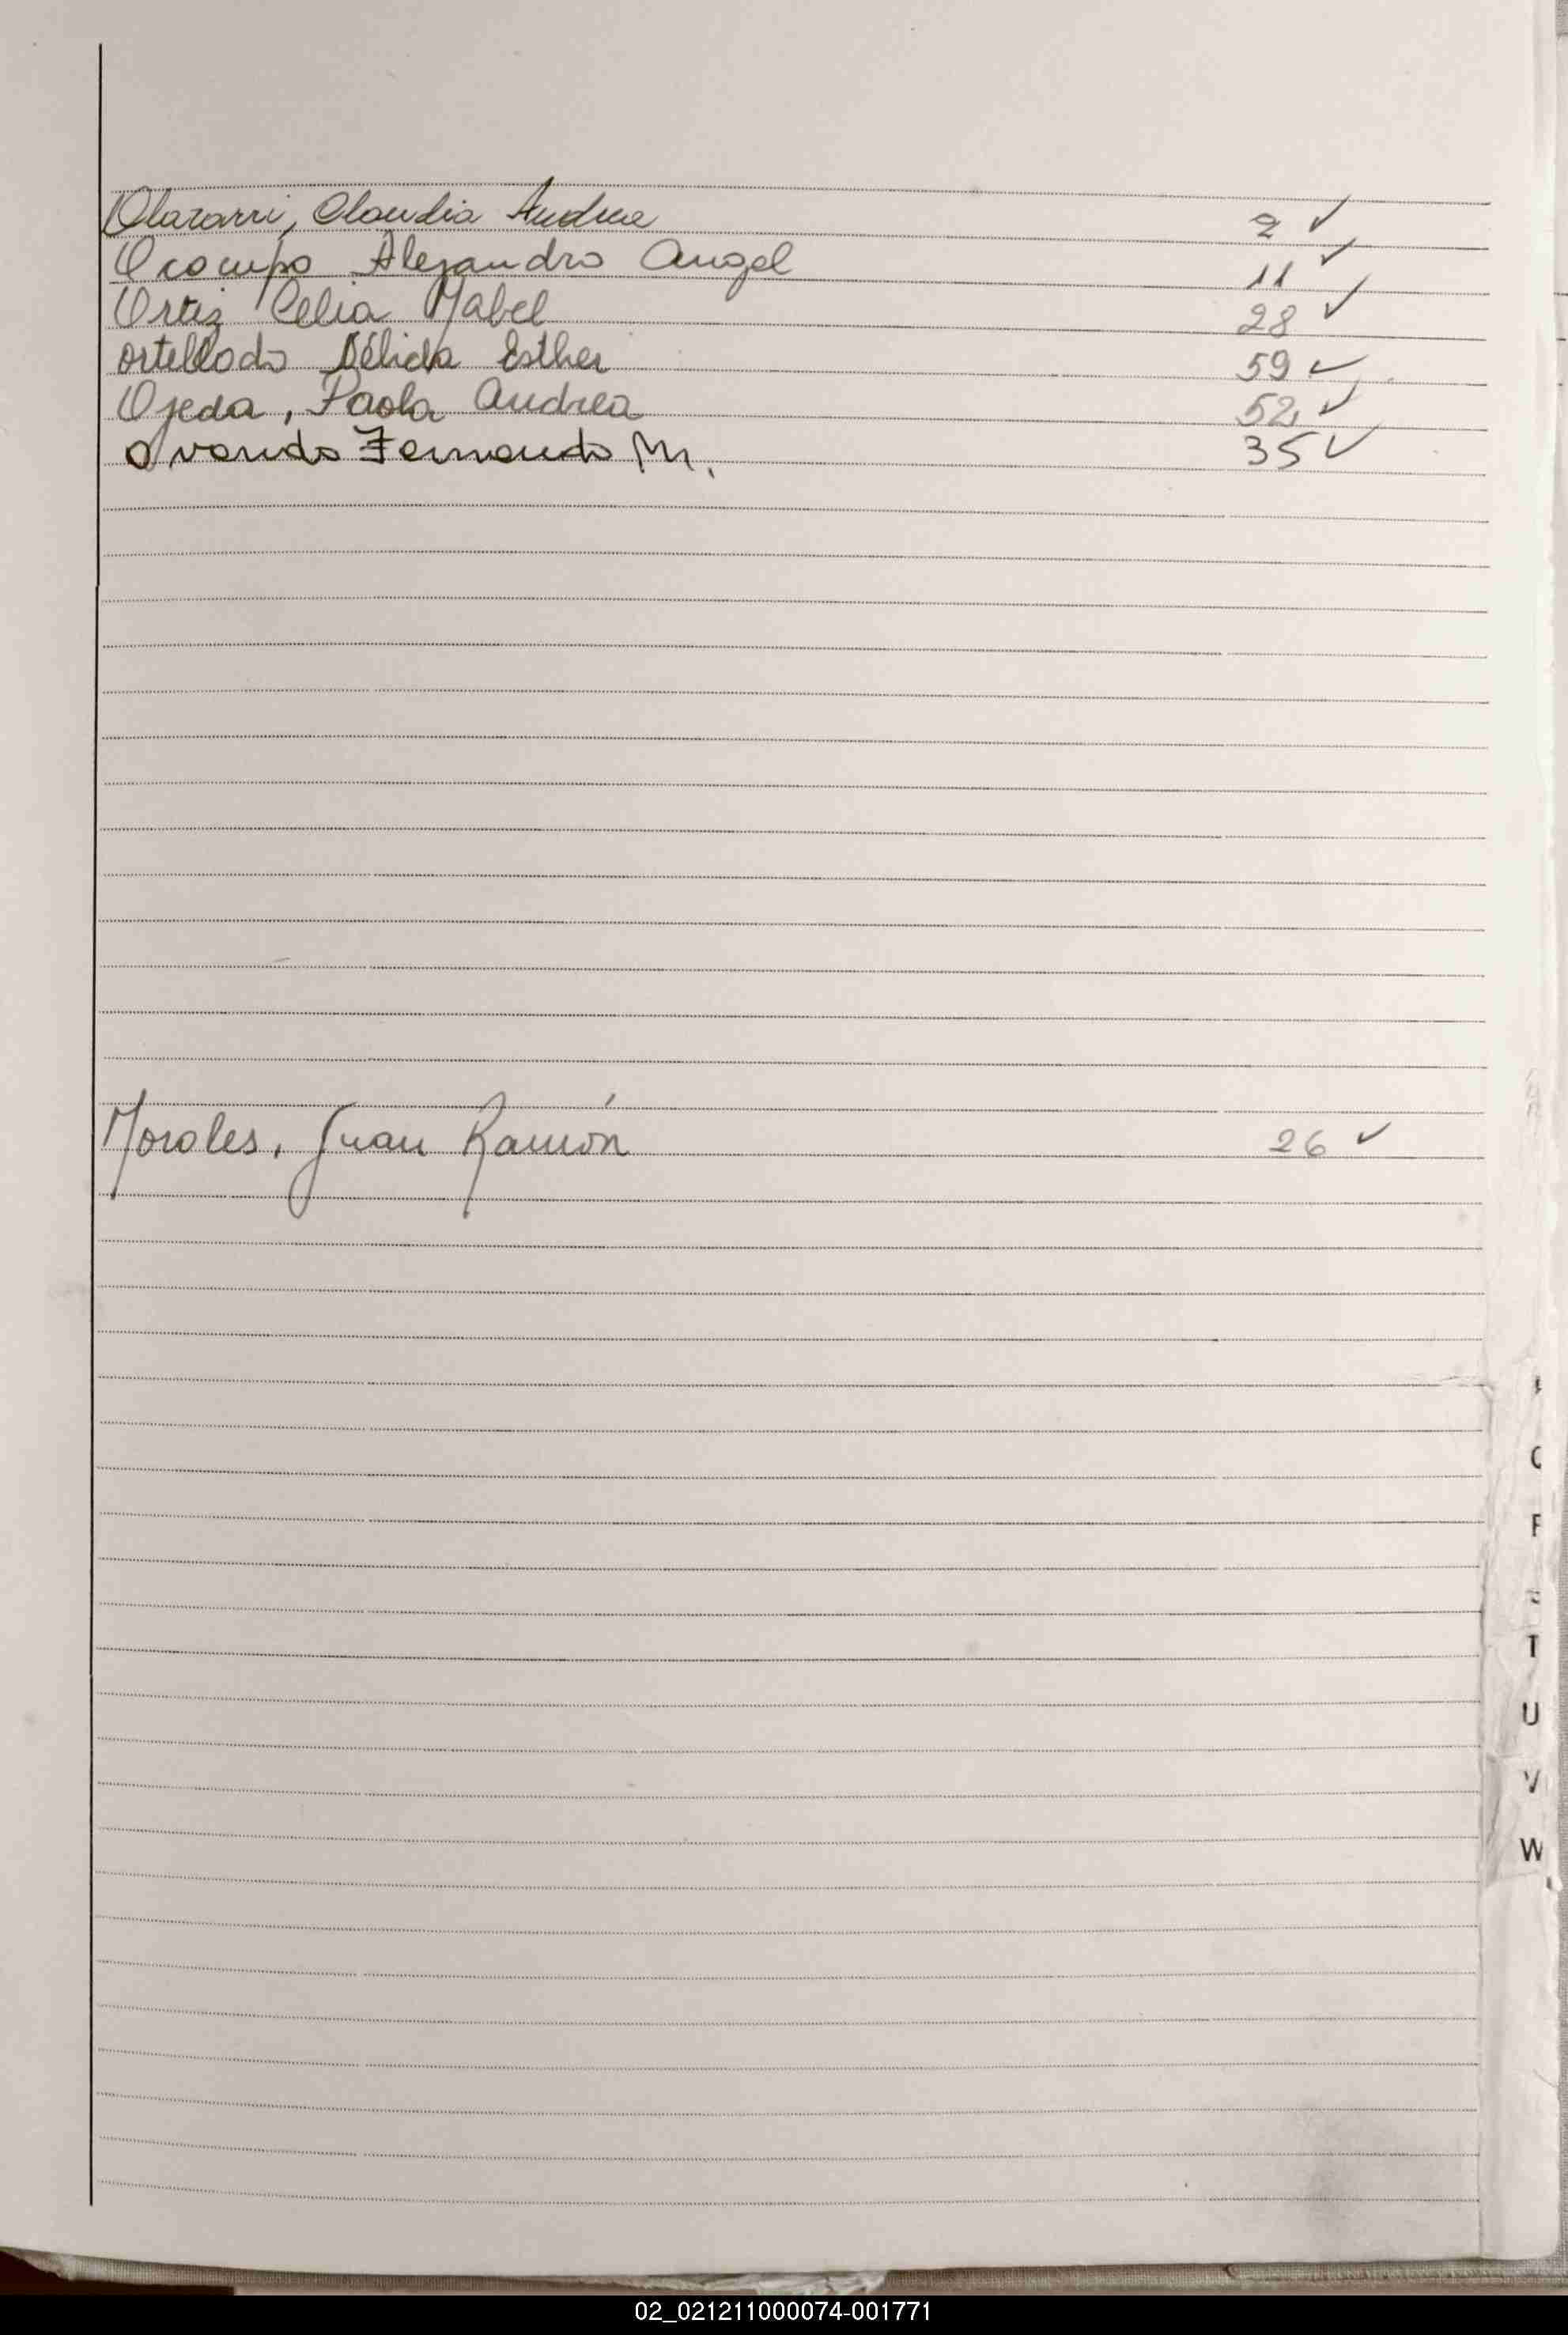 Olazarri, Claudia Andrea 2 ✓
Ocampo Alejandro Angel 11 ✓
Ortiz Celia Mabel 28 ✓
ortellado Délida Esther 59 ✓
Ojeda, Paola Andrea 52 ✓
Ovando Fernando M. 35 ✓
Morales, Juan Ramón 26 ✓
T
U
V
W
02_021211000074-001771